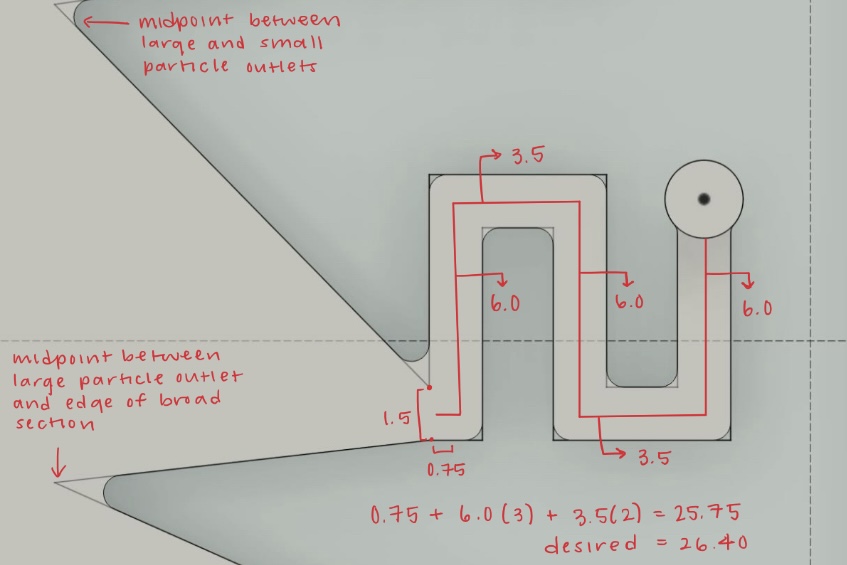 midpoint between
large and small
particle outlets
3.5
6.0
6.0
6.0
midpoint between
large particle outlet
and edge of broad
section
1.5
0.75
3.5
0.75 + 6.0(3) + 3.5(2) = 25.75
desired = 26.40